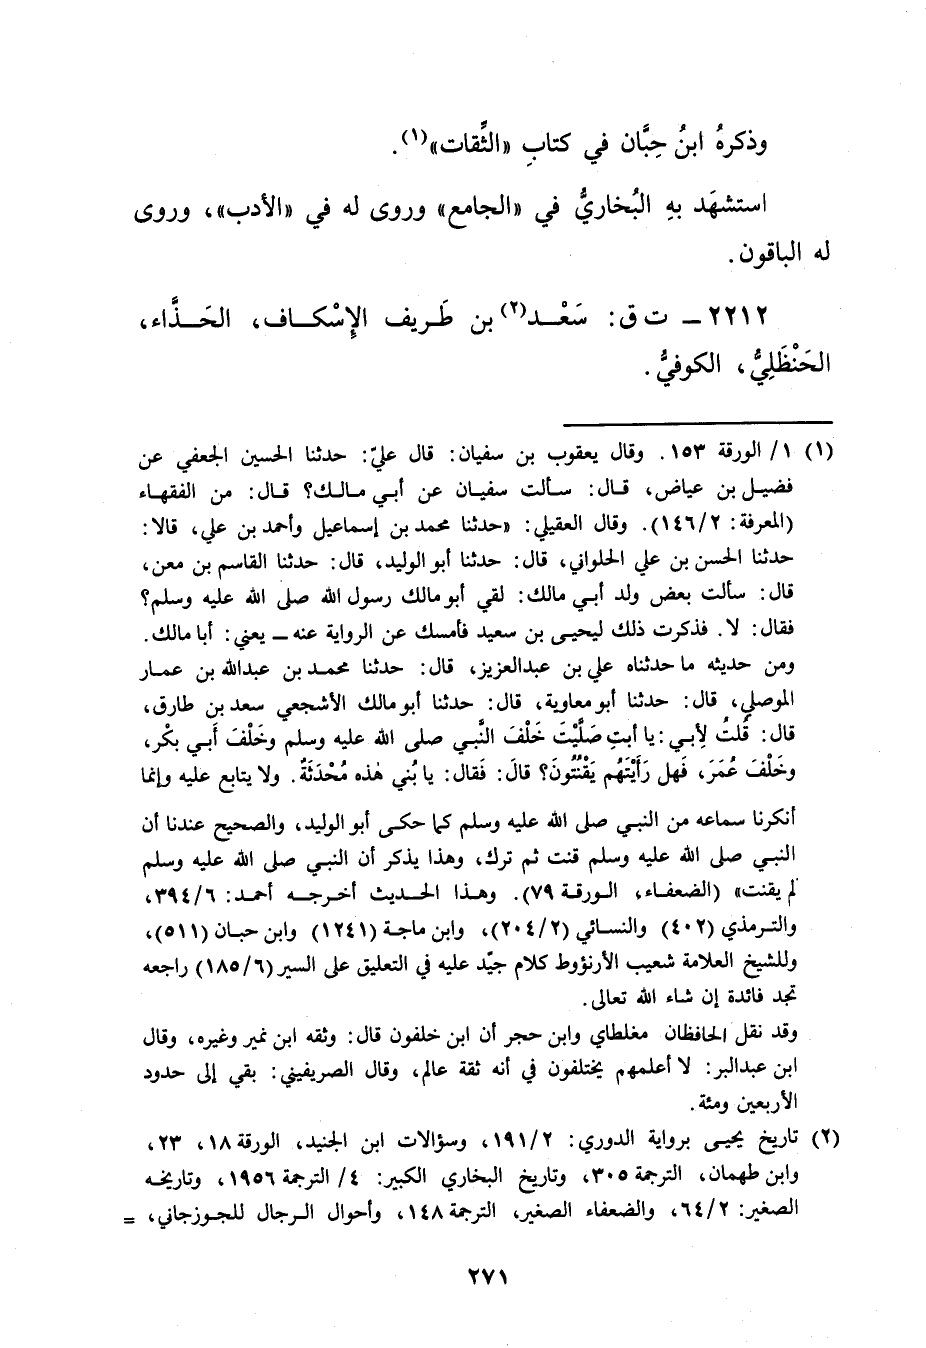 وذكرهُ ابنُ حِبَّان في كتابِ «الثِّقات»(١).
استشهَد بهِ البُخاريُّ في «الجامع» وروى له في «الأدب»، وروى
له الباقون.
٢٢١٢ ــ ت ق: سَعْـد(٢) بن طَريف الإِسْكاف، الحَـذَّاء،
الحَنْظَلِيُّ، الكوفيُّ.
(١) ١/ الورقة ١٥٣. وقال يعقوب بن سفيان: قال عليّ: حدثنا الحسين الجعفي عن
فضيل بن عياض، قال: سألت سفيان عن أبي مالك؟ قال: من الفقهاء
(المعرفة: ١٤٦/٢). وقال العقيلي: «حدثنا محمد بن إسماعيل وأحمد بن علي، قالا:
حدثنا الحسن بن علي الحلواني، قال: حدثنا أبو الوليد، قال: حدثنا القاسم بن معن،
قال: سألت بعض ولد أبي مالك: لقي أبو مالك رسول الله صلى الله عليه وسلم؟
فقال: لا. فذكرت ذلك ليحيى بن سعيد فأمسك عن الرواية عنه ــ يعني: أبا مالك.
ومن حديثه ما حدثناه علي بن عبدالعزيز، قال: حدثنا محمد بن عبدالله بن عمار
الموصلي، قال: حدثنا أبو معاوية، قال: حدثنا أبو مالك الأشجعي سعد بن طارق،
قال: قُلتُ لِأبي: يا أبتِ صَلَّيْتَ خَلْفَ النَّبي صلى الله عليه وسلم وخَلْفَ أَبي بكْر،
وخَلْفَ عُمَرَ، فَهل رَأَيْتَهُم يَقْنُتُونَ؟ قالَ: فَقال: يا بُني هٰذه مُحْدَثَةٌ. ولا يتابع عليه وإنما
أنكرنا سماعه من النبي صلى الله عليه وسلم كما حكى أبو الوليد، والصحيح عندنا أن
النبي صلى الله عليه وسلم قنت ثم ترك، وهذا يذكر أن النبي صلى الله عليه وسلم
لم يقنت» (الضعفاء، الورقة ٧٩). وهذا الحديث أخرجه أحمد: ٣٩٤/٦،
والترمذي (٤٠٢) والنسائي (٢٠٤/٢)، وابن ماجة (١٢٤١) وابن حبان (٥١١)،
وللشيخ العلامة شعيب الأرنؤوط كلام جيّد عليه في التعليق على السير (١٨٥/٦) راجعه
تجد فائدة إن شاء الله تعالى.
وقد نقل الحافظان مغلطاي وابن حجر أن ابن خلفون قال: وثقه ابن نمير وغيره، وقال
ابن عبدالبر: لا أعلمهم يختلفون في أنه ثقة عالم، وقال الصريفيني: بقي إلى حدود
الأربعين ومئة.
(٢) تاريخ يحيى برواية الدوري: ١٩١/٢، وسؤالات ابن الجنيد، الورقة ١٨، ٢٣،
وابن طهمان، الترجمة ٣٠٥، وتاريخ البخاري الكبير: ٤/ الترجمة ١٩٥٦، وتاريخه
الصغير: ٦٤/٢، والضعفاء الصغير، الترجمة ١٤٨، وأحوال الرجال للجوزجاني، =
٢٧١